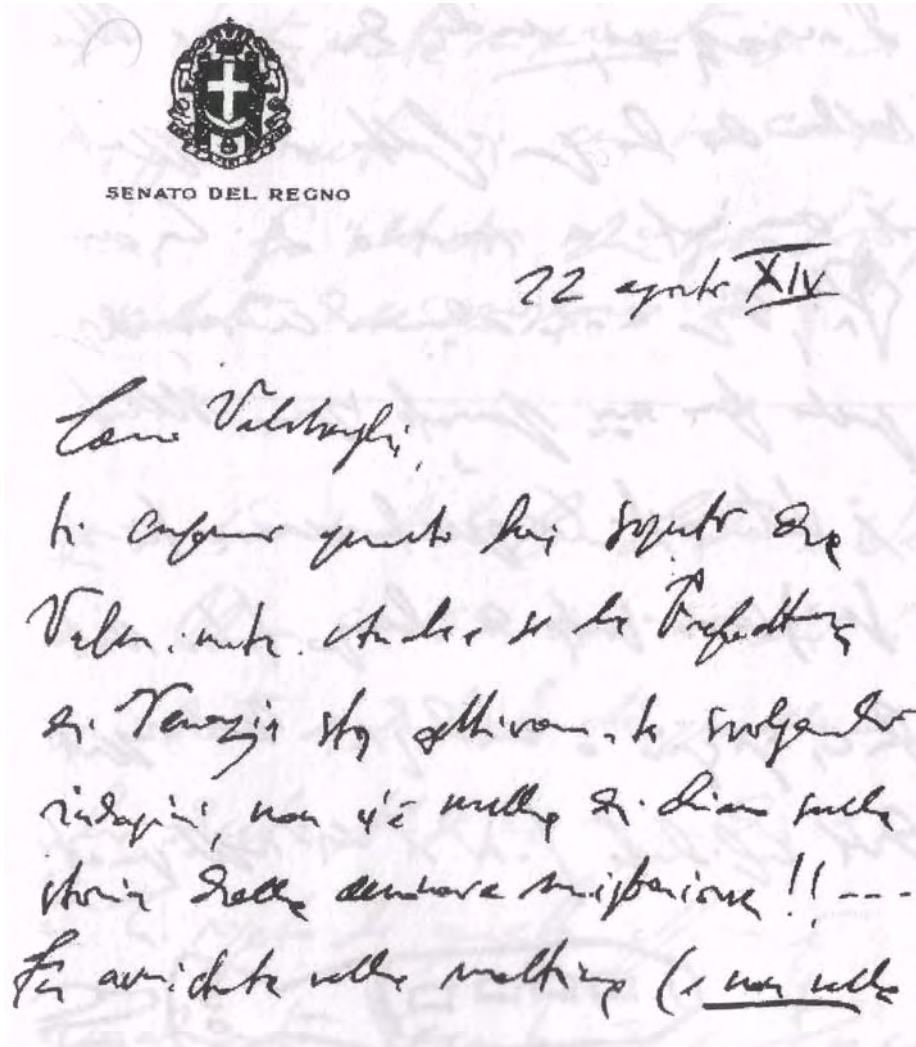 SENATO DEL REGNO
22 agosto XIV
Caro Valbraghi,
ti confermo quanto hai saputo da
Valm. Anche se la Prefettura
di Venezia sta attivam.te svolgendo
indagini, non c'è nulla di chiaro sulla
storia della aeronave misteriosa!! ---
Fu avvistata nella mattina (e non nella